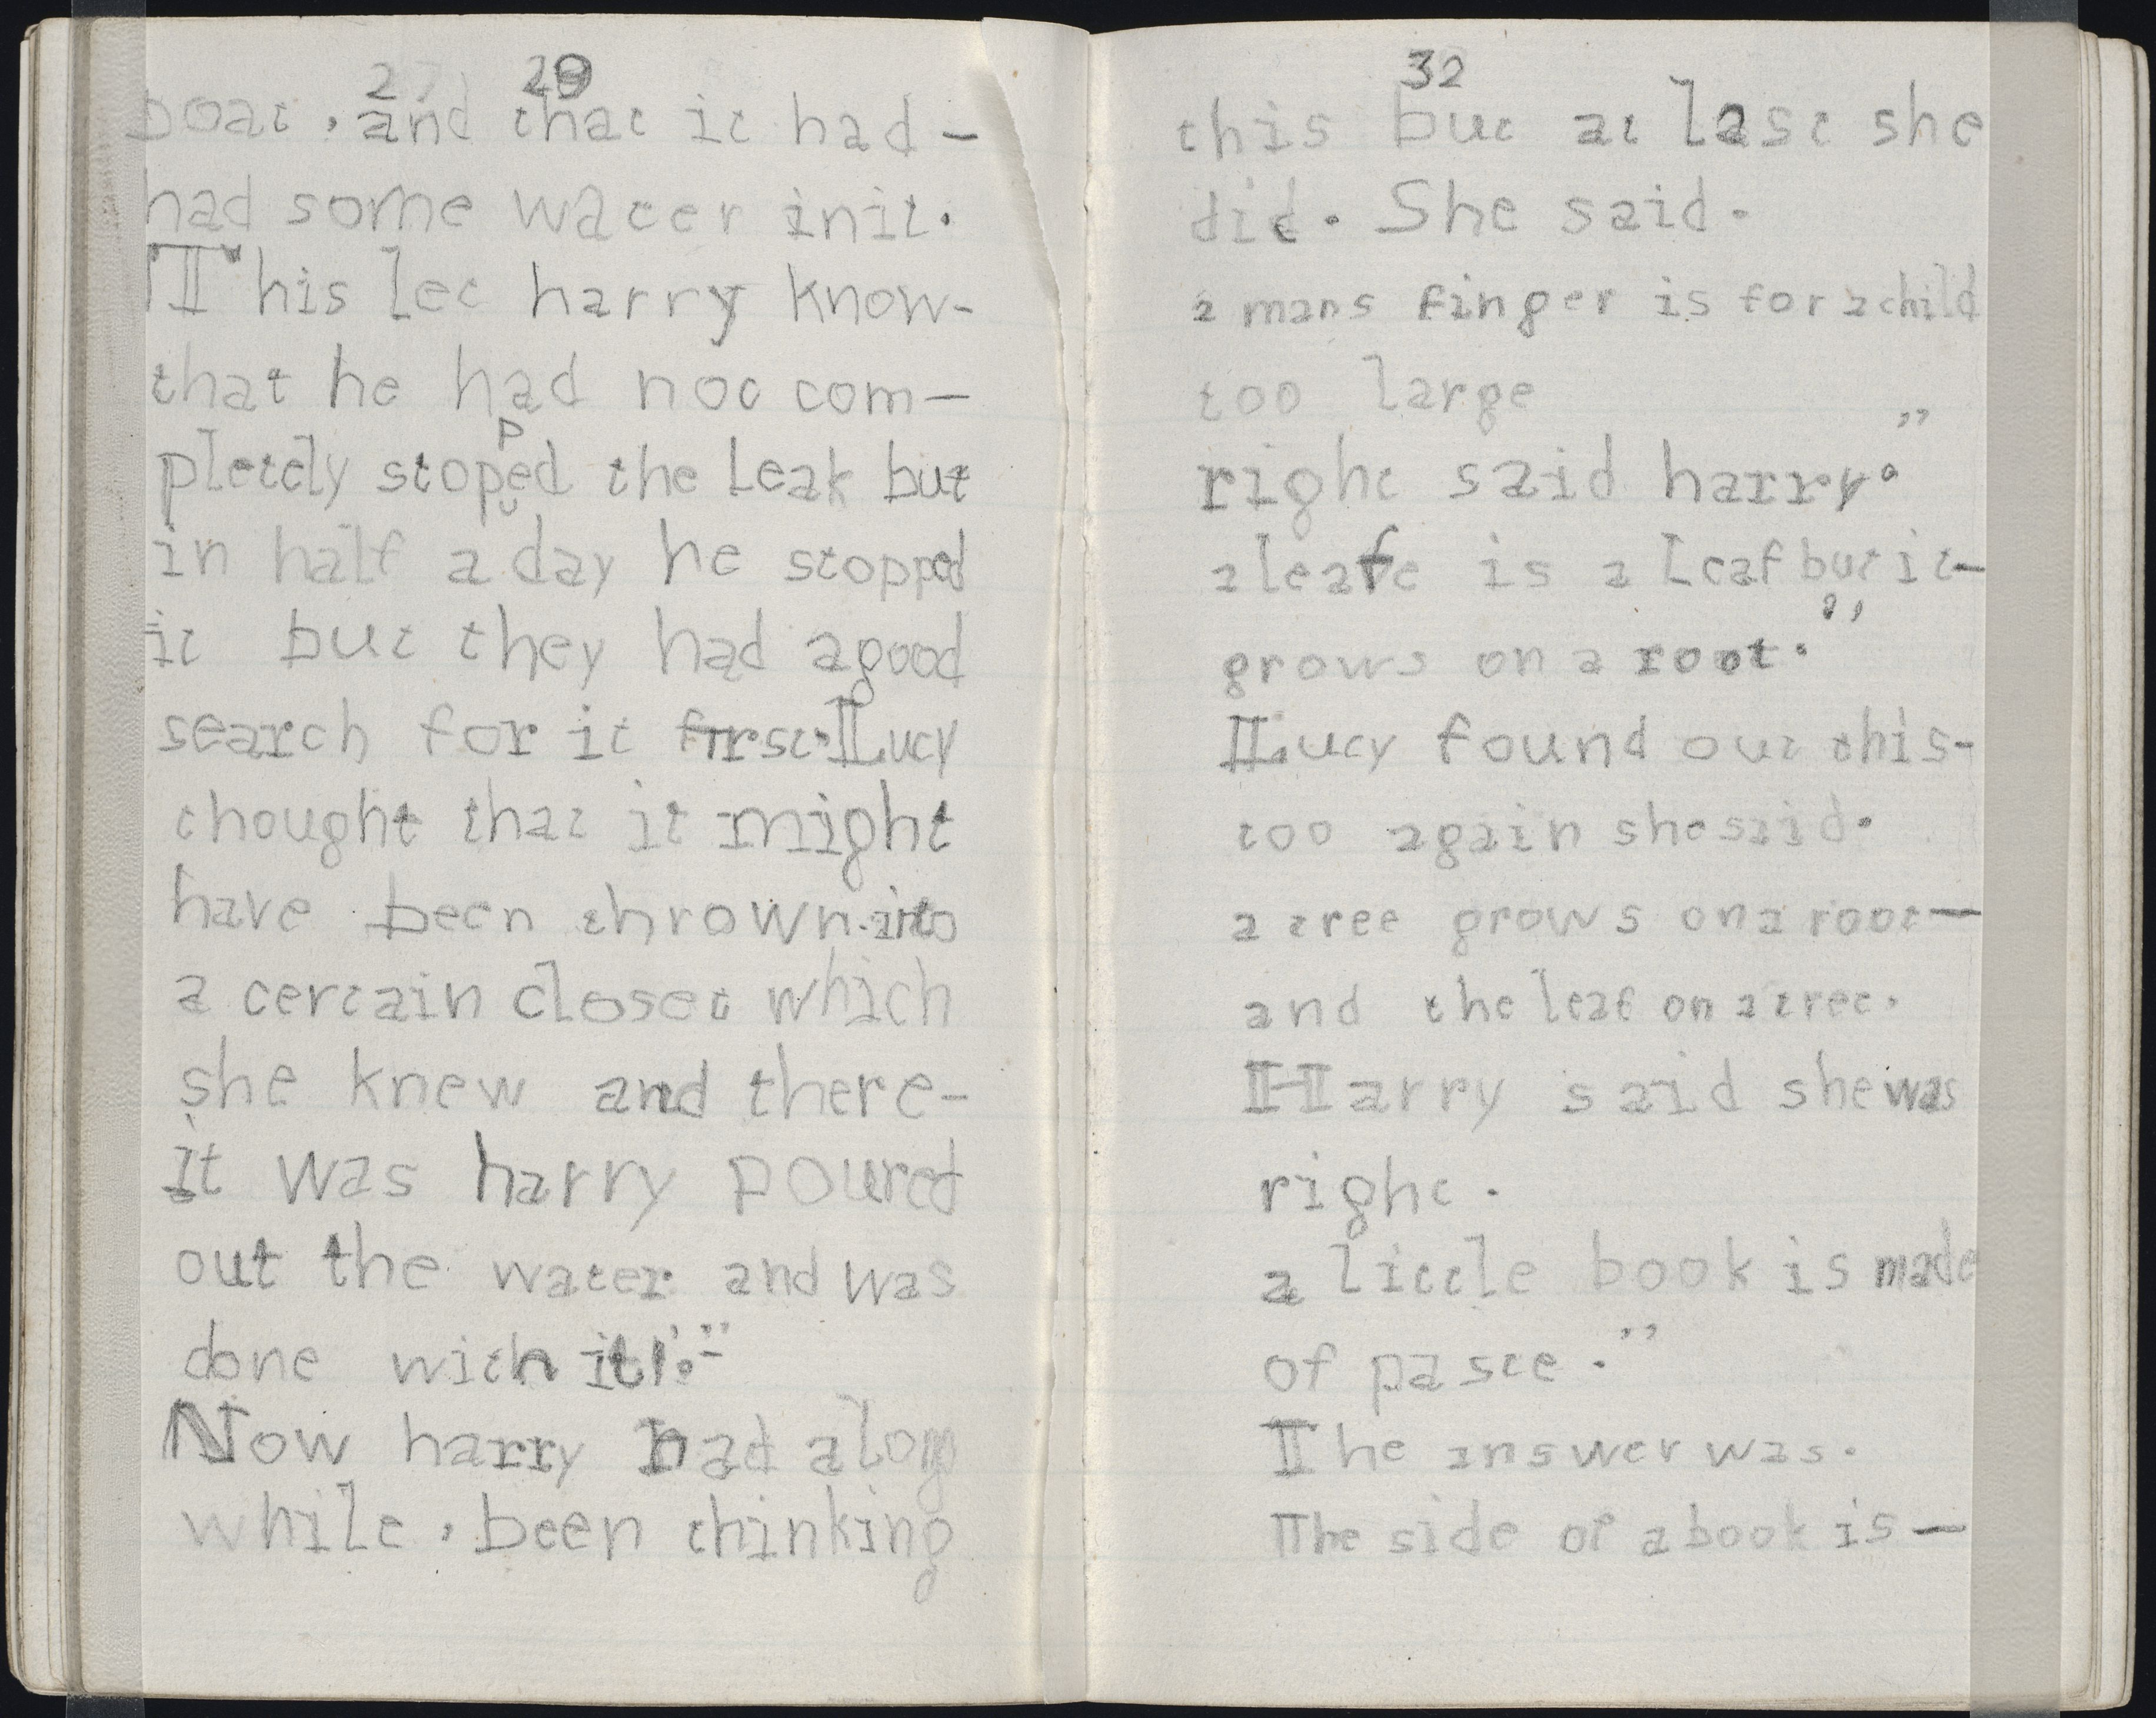 27 29
boat, and that it had-
had some water init.
This let harry know-
that he had not com-
pletely stopped the leak but
in half a day he stopped
it but they had agood
search for it first. Lucy
thought that it might
have been thrown into
a certain closet which
she knew and there-
it was harry poured
out the water and was
done with it!"
Now harry had along
while, been thinking
32
this but at last she
did. She said.
a mans finger is for a child
too large "
right said harry.
a leafe is a Leaf but it-
grows on a root."
Lucy found out this-
too again she said.
a tree grows on a root-
and the leaf on a tree.
Harry said she was
right.
a little book is made
of paste."
The answer was.
The side of a book is-